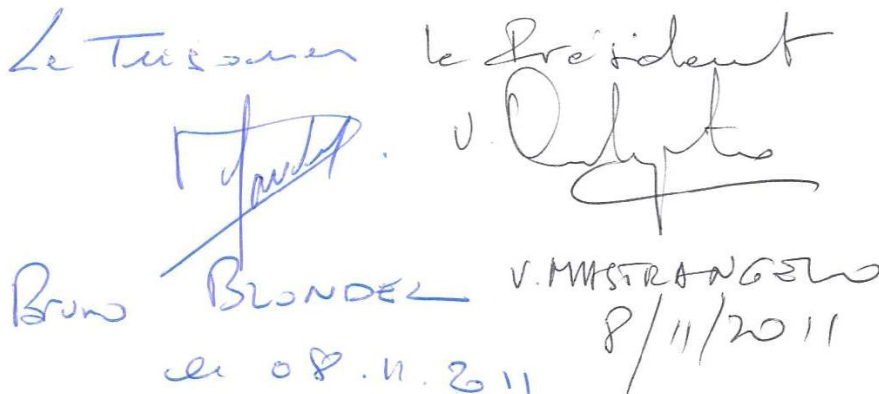 Le Trésorier
Bruno BLONDEL
le 08.11.2011
le Président
V.
V. MASTRANGELO
8/11/2011